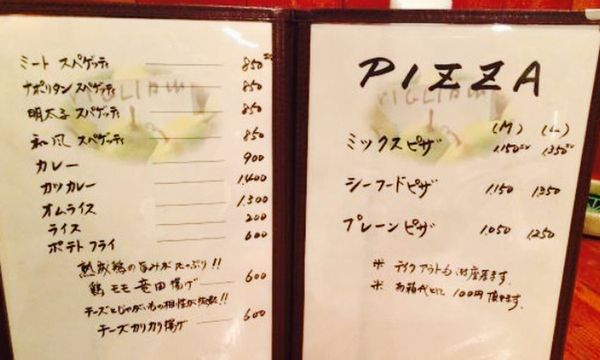 ミート スパゲッティ 850
ナポリタン スパゲッティ 850
明太子 スパゲッティ 850
和風 スパゲッティ 850
カレー 900
カツカレー 1,400
オムライス 1,300
ライス 200
ポテトフライ 600
熟成鶏の旨みがたっぷり!!
鶏モモ竜田揚げ 600
チーズとじゃがいもの相性が抜群!!
チーズカリカリ揚げ 600
PIZZA
(M) (L)
ミックスピザ 1,150 1,350
シーフードピザ 1,150 1,350
プレーンピザ 1,050 1,250
※ テイクアウトも出来ます。
※ お箱代として100円頂きます。